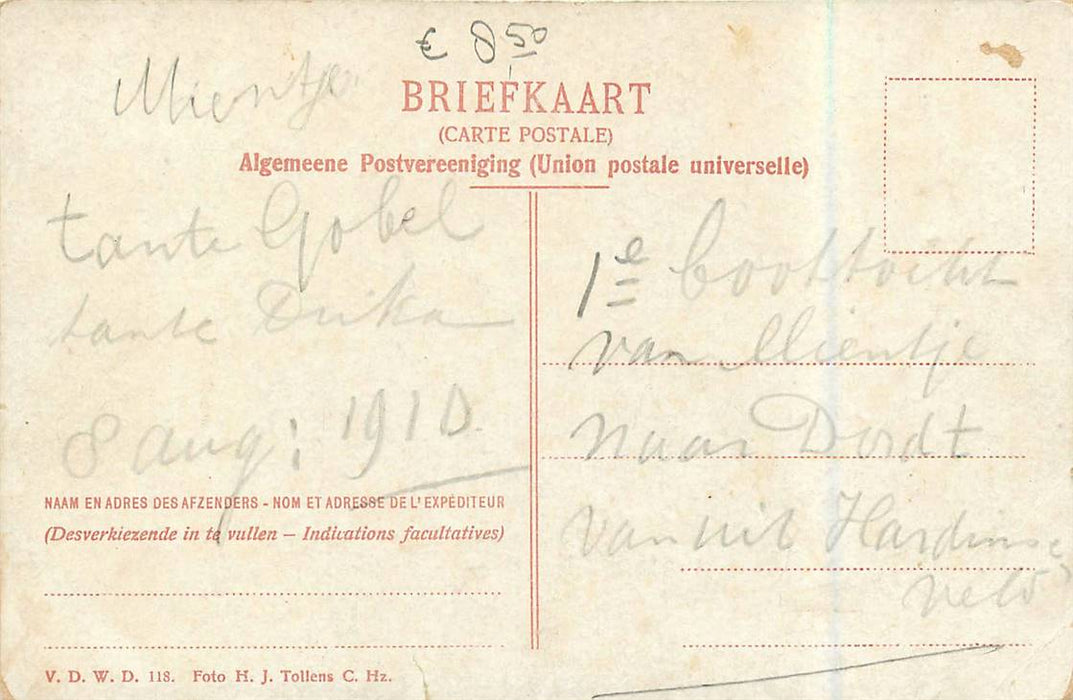 € 8 50
Mientje
BRIEFKAART
(CARTE POSTALE)
Algemeene Postvereeniging (Union postale universelle)
tante Gobel
tante Drika
8 aug: 1910
NAAM EN ADRES DES AFZENDERS - NOM ET ADRESSE DE L'EXPÉDITEUR
(Desverkiezende in te vullen — Indications facultatives)
V. D. W. D. 118. Foto H. J. Tollens C. Hz.
1e boottocht
van Mientje
naar Dordt
vanuit Hardinxe
veld